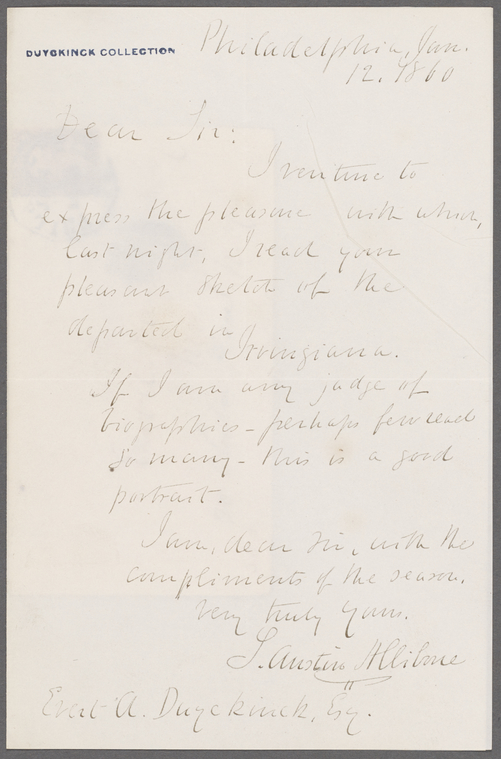 DUYCKINCK COLLECTION
Philadelphia, Jan.
12. 1860
Dear Sir:
I venture to
express the pleasure with which,
last night, I read your
pleasant sketch of the
departed in
Irvingiana.
If I am any judge of
biographies - perhaps few read
so many - this is a good
portrait.
I am, dear sir, with the
compliments of the season,
very truly yours.
S. Austin Allibone
Evert A. Duyckinck, Esq.